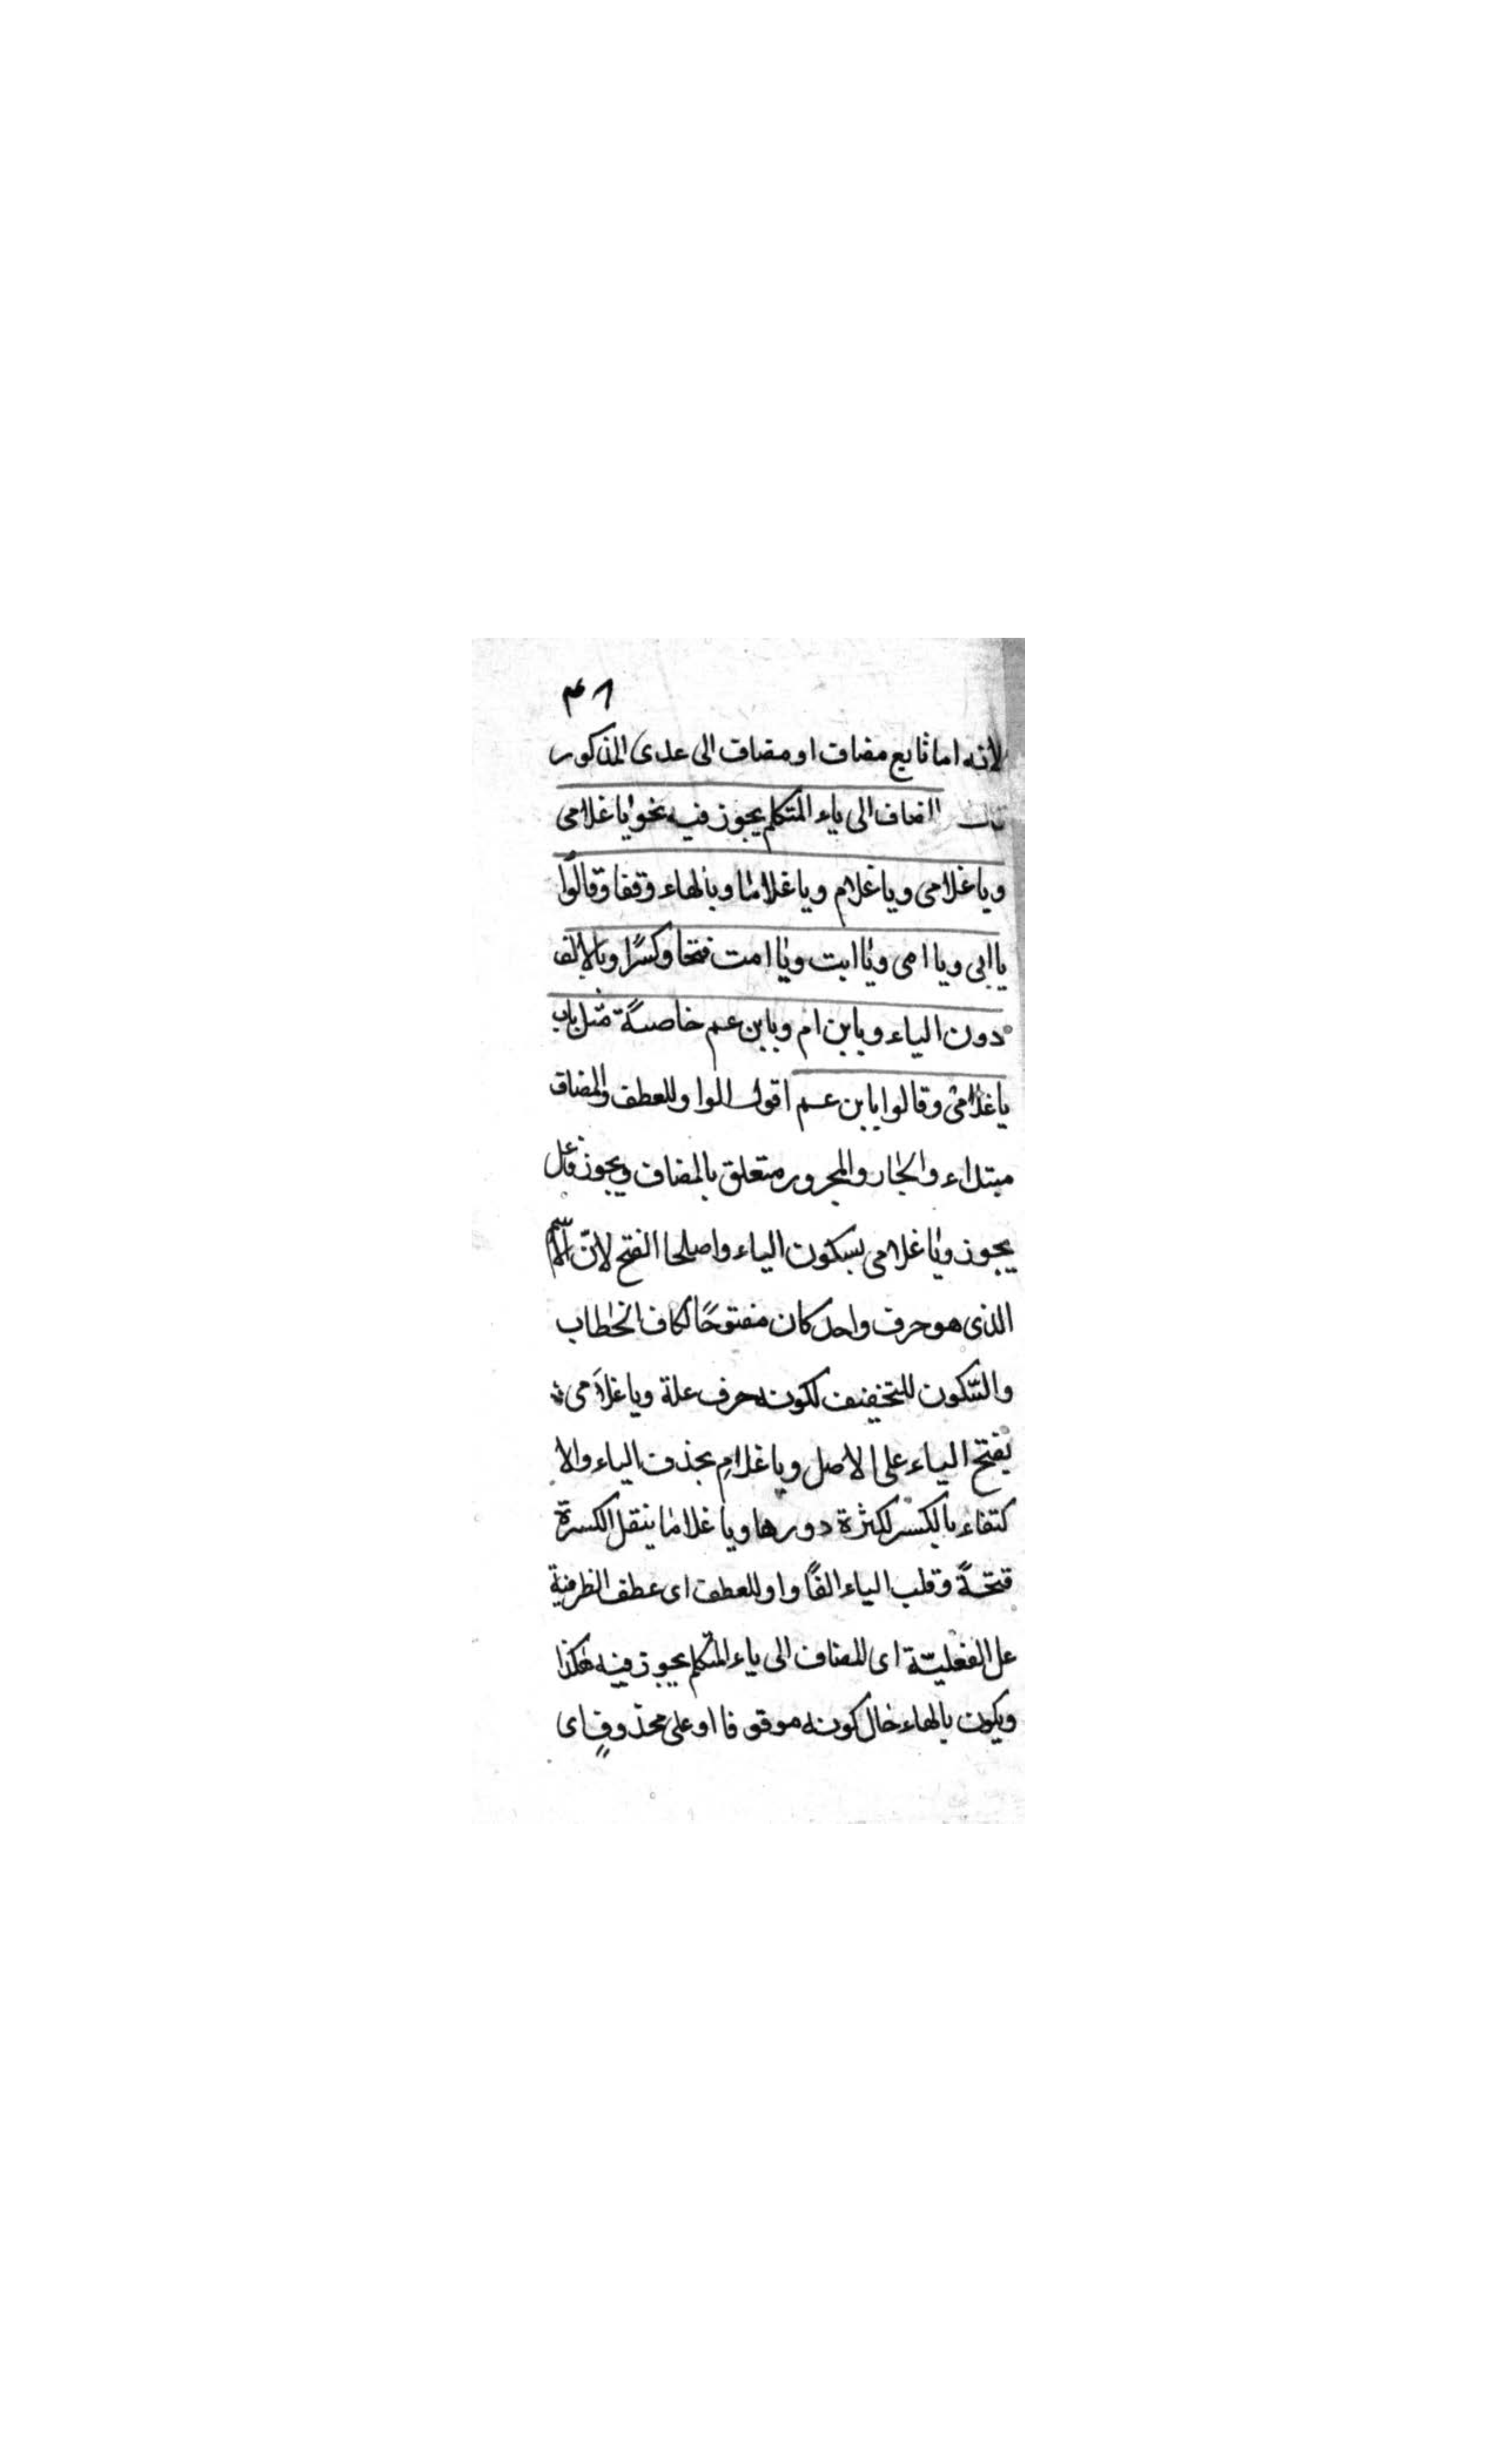 ٤٨
لانه اما تابع مضاف او مضاف الى عدى المذكور
المضاف الى ياء المتكلم يجوز فيه نحو يا غلامى
ويا غلامى ويا غلام ويا غلاما وبالهاء وقفا وقالوا
يا ابى ويا امى ويا ابت ويا امت فتحا وكسرًا وبالالف
دون الياء ويابن ام ويابن عم خاصة مثل باب
يا غلامى وقالوا يابن عم اقول الواو للعطف والمضاف
مبتداء والجار والمجرور متعلق بالمضاف ويجوز فاعل
يجوز ويا غلامى بسكون الياء واصلها الفتح لانّ الاسم
الذى هو حرف واحد كان مفتوحًا لكاف الخطاب
والسّكون للتخفيف لكونه حرف علة ويا غلاَمى
بفتح الياء على الاصل ويا غلامِ بحذف الياء والا
كتفاء بالكسر لكثرة دورها ويا غلاما ينقل الكسرة
فتحةً وقلب الياء الفًا واو للعطف اى عطف الظرفية
على الفعليّة اى المضاف الى ياء المتكلم يجوز فيه هكذا
ويكون بالهاء حال كونه موقوفا او على محذوفٍ اى